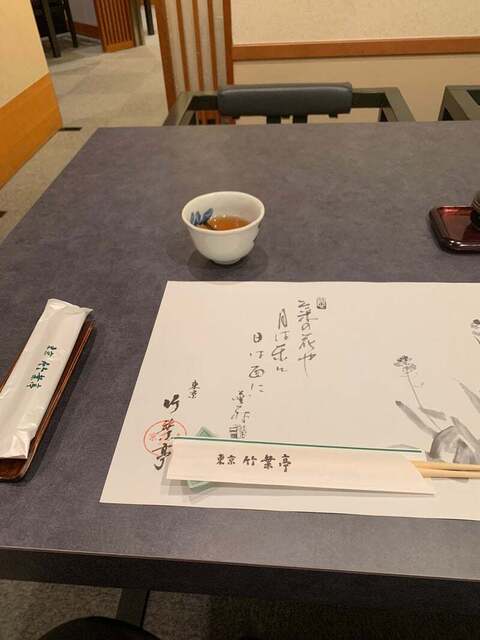 菜の花や
月は東に
日は西に
蕪村
東京
竹葉亭
東京 竹葉亭
東京 竹葉亭